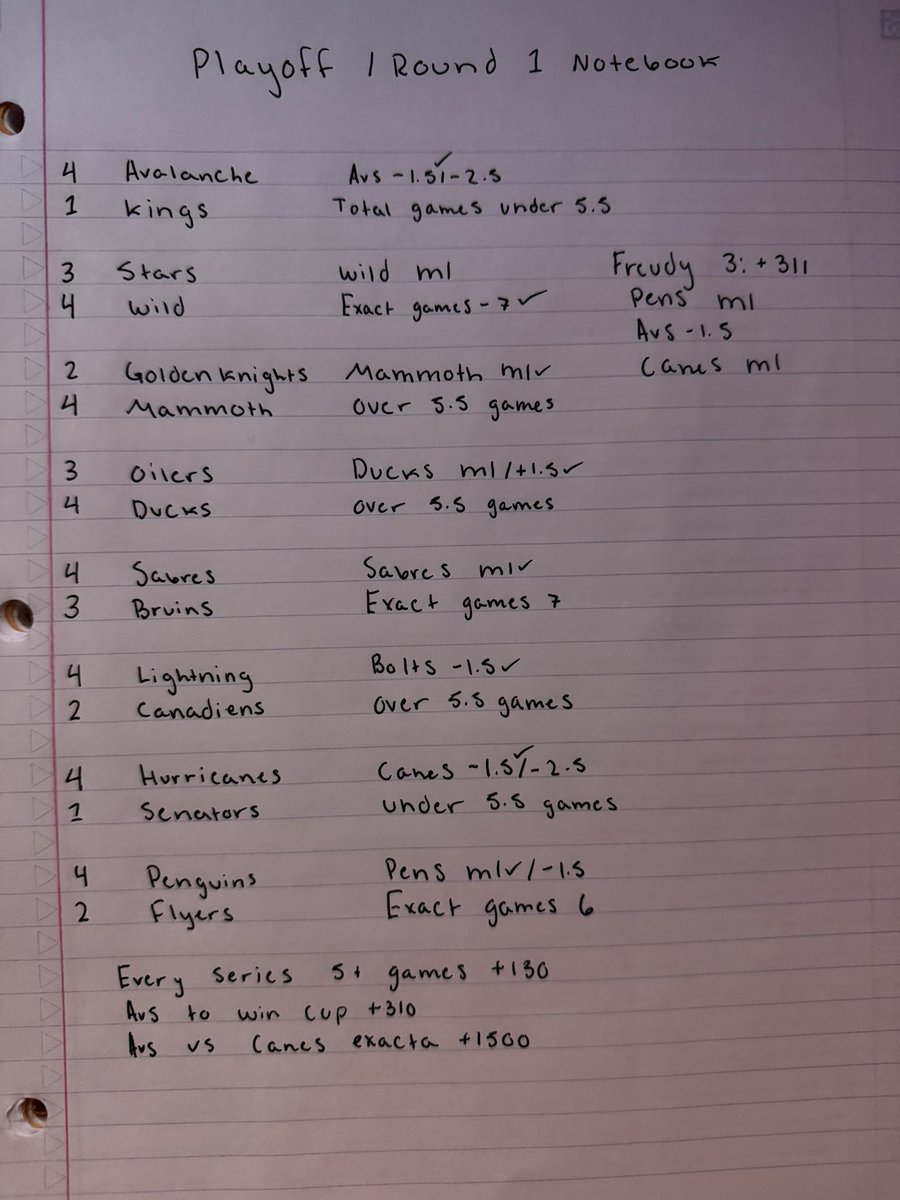 Playoff / Round 1 Notebook
4 Avalanche Avs -1.5✓/-2.5
1 Kings Total games under 5.5
3 Stars Wild ml
4 Wild Exact games - 7 ✓
Freudy 3: +311
Pens ml
Avs -1.5
Canes ml
2 Golden Knights Mammoth ml✓
4 Mammoth Over 5.5 games
3 Oilers Ducks ml/+1.5✓
4 Ducks Over 5.5 games
4 Sabres Sabres ml✓
3 Bruins Exact games 7
4 Lightning Bolts -1.5✓
2 Canadiens Over 5.5 games
4 Hurricanes Canes -1.5✓/-2.5
1 Senators Under 5.5 games
4 Penguins Pens ml✓/-1.5
2 Flyers Exact games 6
Every series 5+ games +130
Avs to win cup +310
Avs vs Canes exacta +1500